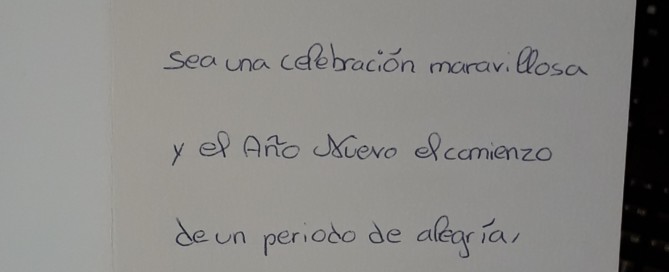 sea una celebración maravillosa
y el Año Nuevo el comienzo
de un periodo de alegría,